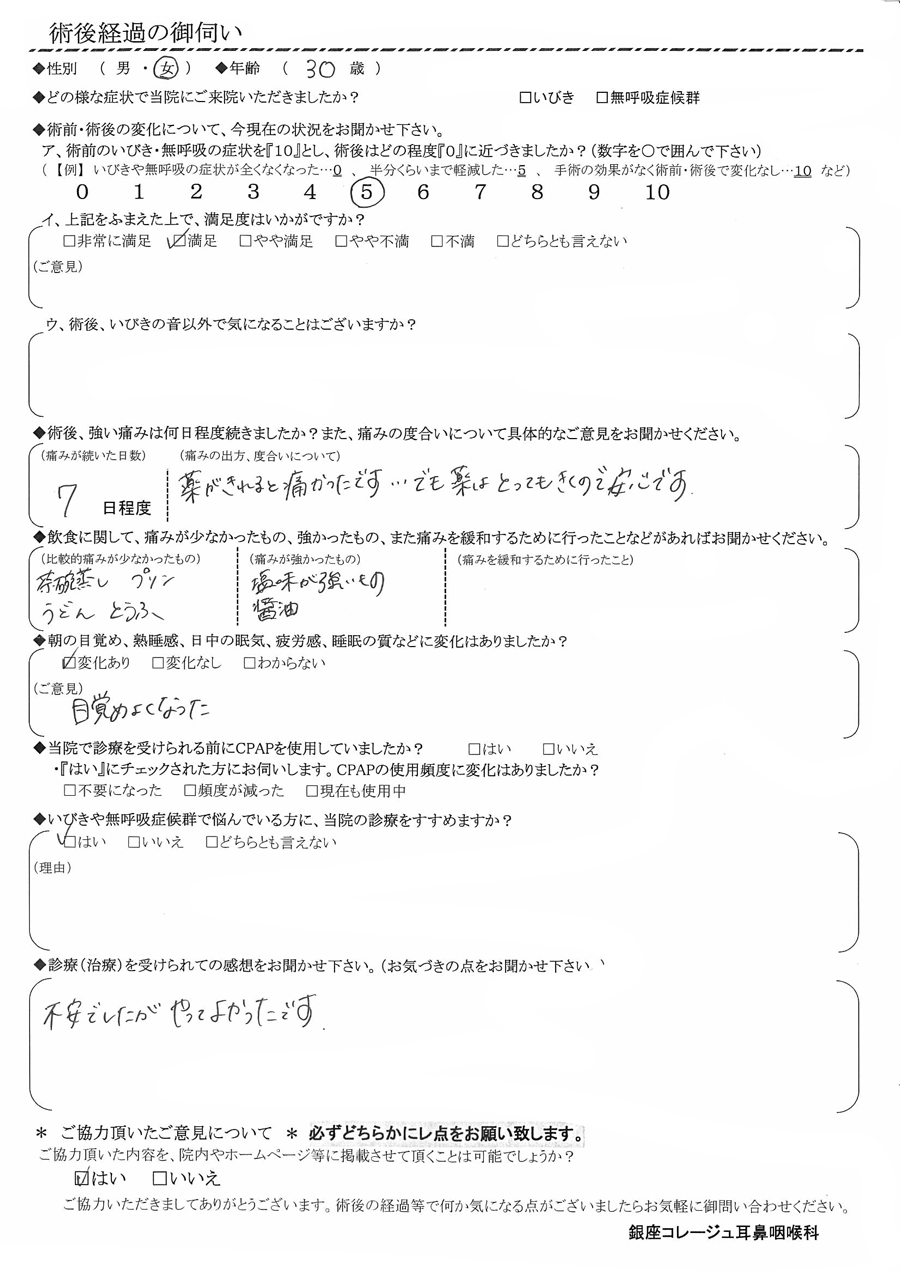 術後経過の御伺い
◆性別 （ 男 ・ 女 ） ◆年齢 （ 30 歳 ）
◆どの様な症状で当院にご来院いただきましたか？ □いびき □無呼吸症候群
◆術前・術後の変化について、今現在の状況をお聞かせ下さい。
ア、術前のいびき・無呼吸の症状を『10』とし、術後はどの程度『0』に近づきましたか？（数字を〇で囲んで下さい）
（【例】いびきや無呼吸の症状が全くなくなった…0 、 半分くらいまで軽減した…5 、 手術の効果がなく術前・術後で変化なし…10 など）
0 1 2 3 4 5 6 7 8 9 10
イ、上記をふまえた上で、満足度はいかがですか？
□非常に満足 ☑満足 □やや満足 □やや不満 □不満 □どちらとも言えない
（ご意見）
ウ、術後、いびきの音以外で気になることはございますか？
◆術後、強い痛みは何日程度続きましたか？また、痛みの度合いについて具体的なご意見をお聞かせください。
（痛みが続いた日数） （痛みの出方、度合いについて）
薬がきれると痛かったです…でも薬はとってもきくので安心です.
7 日程度
◆飲食に関して、痛みが少なかったもの、強かったもの、また痛みを緩和するために行ったことなどがあればお聞かせください。
（比較的痛みが少なかったもの） （痛みが強かったもの） （痛みを緩和するために行ったこと）
茶碗蒸し プリン 塩味が強いもの
うどん とうふ 醤油
◆朝の目覚め、熟睡感、日中の眠気、疲労感、睡眠の質などに変化はありましたか？
☑変化あり □変化なし □わからない
（ご意見）
目覚めよくなった
◆当院で診療を受けられる前にCPAPを使用していましたか？ □はい □いいえ
・『はい』にチェックされた方にお伺いします。CPAPの使用頻度に変化はありましたか？
□不要になった □頻度が減った □現在も使用中
◆いびきや無呼吸症候群で悩んでいる方に、当院の診療をすすめますか？
☑はい □いいえ □どちらとも言えない
（理由）
◆診療（治療）を受けられての感想をお聞かせ下さい。（お気づきの点をお聞かせ下さい
不安でしたが やってよかったです.
＊ ご協力頂いたご意見について ＊ 必ずどちらかにレ点をお願い致します。
ご協力頂いた内容を、院内やホームページ等に掲載させて頂くことは可能でしょうか？
☑はい □いいえ
ご協力いただきましてありがとうございます。術後の経過等で何か気になる点がございましたらお気軽に御問い合わせください。
銀座コレージュ耳鼻咽喉科